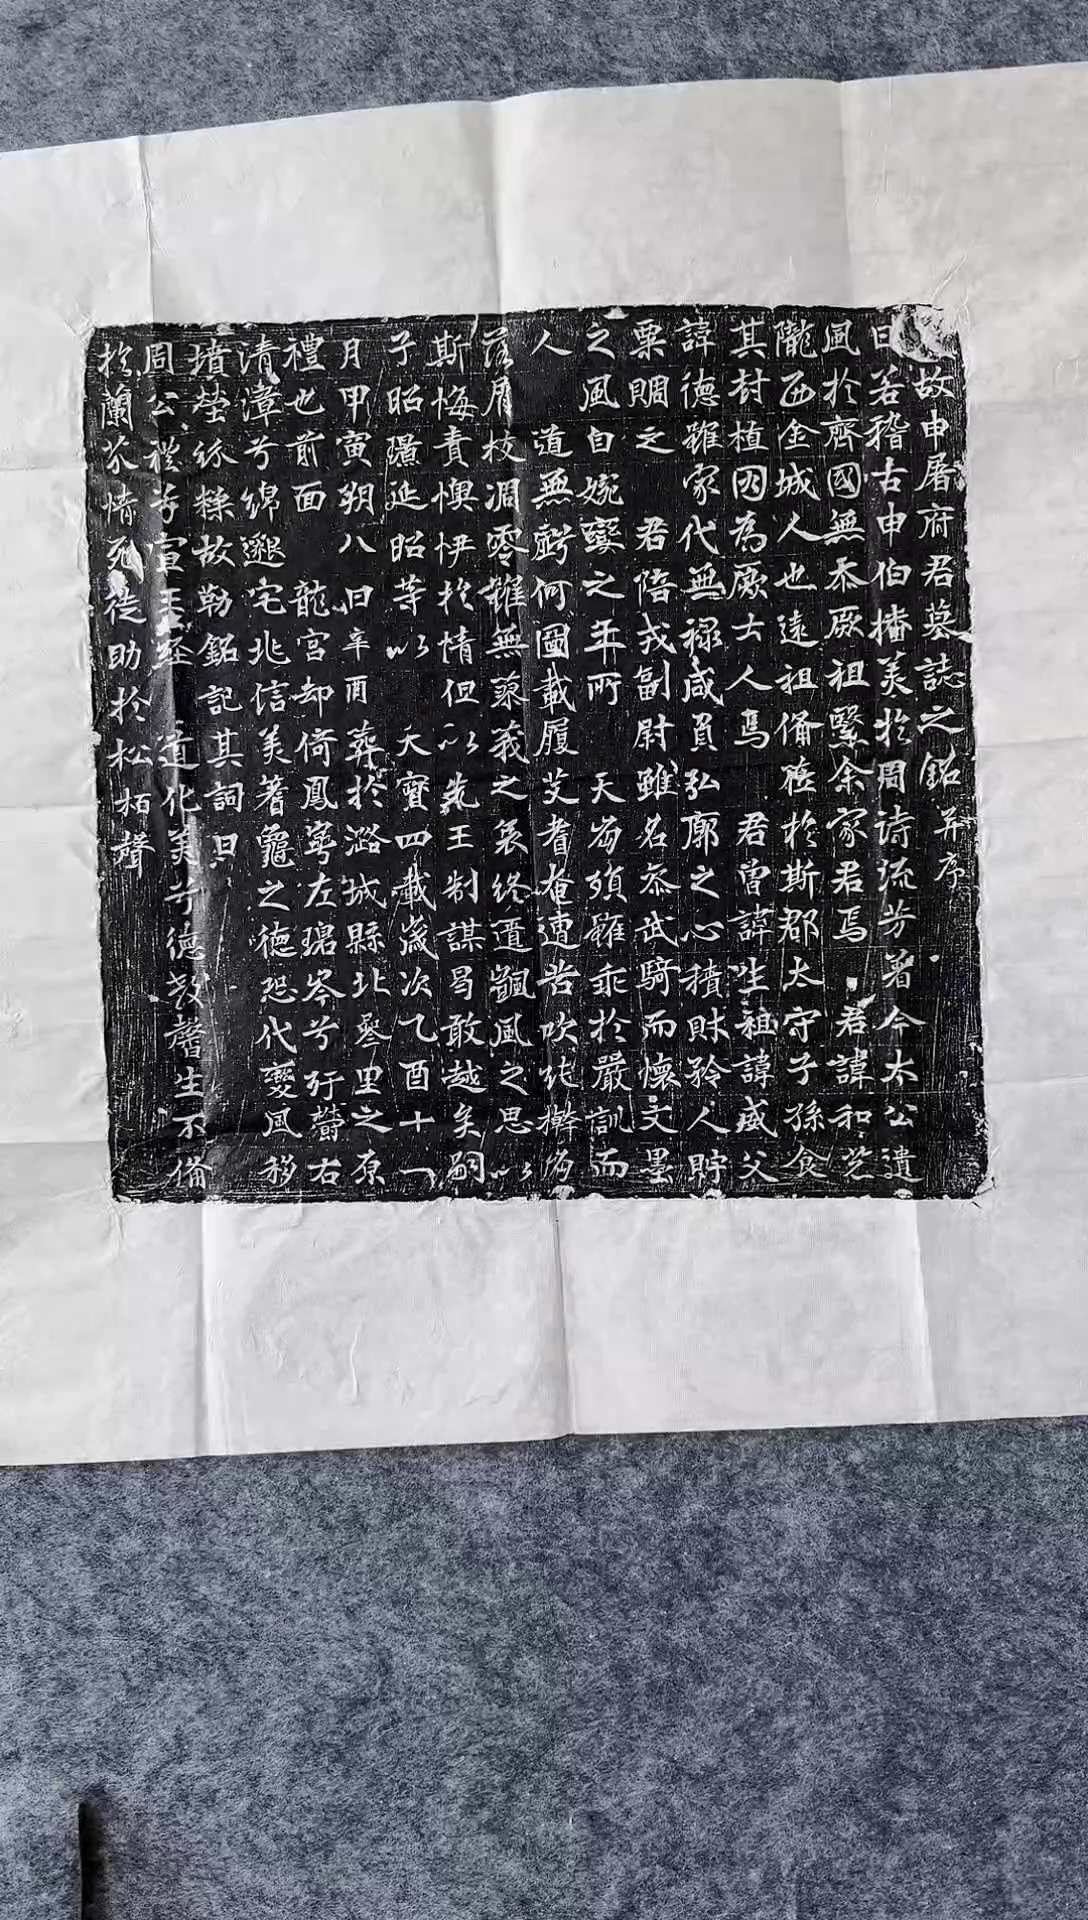 故申屠府君墓誌之銘并序
曰若稽古申伯播美於周詩流芳著今太公遺
風於齊國無忝厥祖繄余家君焉君諱和芝
隴西金城人也遠祖俻薩於斯郡太守子孫食
其封植因為厥士人焉君曾諱生祖諱威父
諱德雖家代無祿咸負弘廓之心積財矜人貯
粟賙之君陪戎副尉雖名忝武騎而懷文墨
之風自婉孌之年所天夙殞雖乖於嚴訓而
人道無虧何圖載履艾耆奄遘
落月校凋零雖無蓼莪之哀終遵飄風之思以
斯悔責懊伊於情但以先王制謀曷敢越矣嗣
子昭環延昭等以天寶四載歲次乙酉十一
月甲寅朔八日辛酉葬於潞城縣北叄里之原
禮也前面龍宮却倚鳳寧左琚岑兮右
清漳兮綿邈宅兆信美著龜之德恐代變風移
墳塋紛糅故勒銘記其詞曰
周公禮兮宣王經道化美兮德教馨生不俻
於蘭芬情死徒助於松栢聲